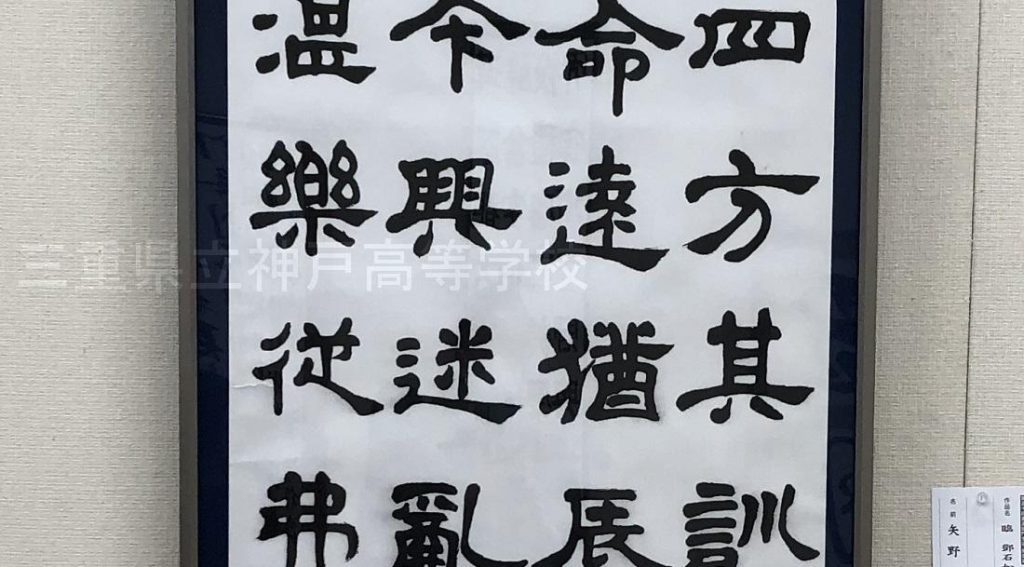 四方其訓
命遠猶辰
今興迷亂
湛樂從弗
三重県立神戸高等学校
作品名 臨 鄧石
名前 矢野